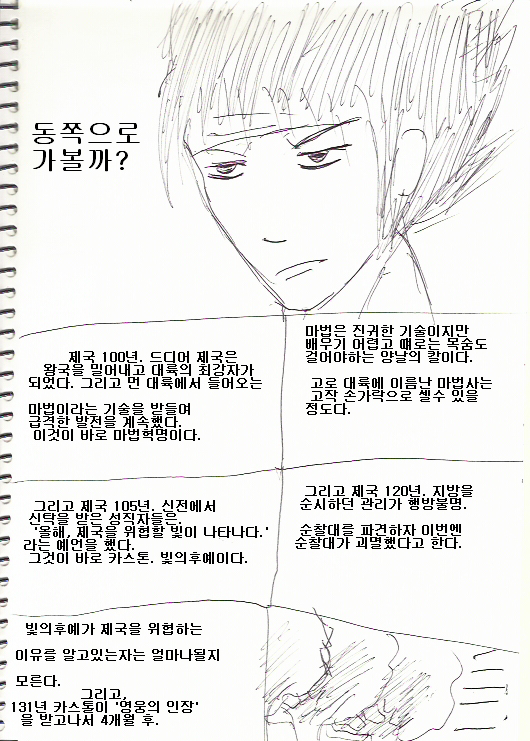 동쪽으로
가볼까?
제국 100년. 드디어 제국은
왕국을 밀어내고 대륙의 최강자가
되었다. 그리고 먼 대륙에서 들어오는
마법이라는 기술을 받들여
급격한 발전을 계속했다.
이것이 바로 마법혁명이다.
마법은 진귀한 기술이지만
배우기 어렵고 때로는 목숨도
걸어야하는 양날의 칼이다.
고로 대륙에 이름난 마법사는
고작 손가락으로 셀수 있을
정도다.
그리고 제국 105년. 신전에서
신탁을 받은 성직자들은.
'올해, 제국을 위협할 빛이 나타나다.'
라는 예언을 했다.
그것이 바로 카스톤. 빛의후예이다.
그리고 제국 120년. 지방을
순시하던 관리가 행방불명.
순찰대를 파견하자 이번엔
순찰대가 괴멸했다고 한다.
빛의후예가 제국을 위협하는
이유를 알고있는자는 얼마나될지
모른다.
그리고,
131년 카스톤이 '영웅의 인장'
을 받고나서 4개월 후.